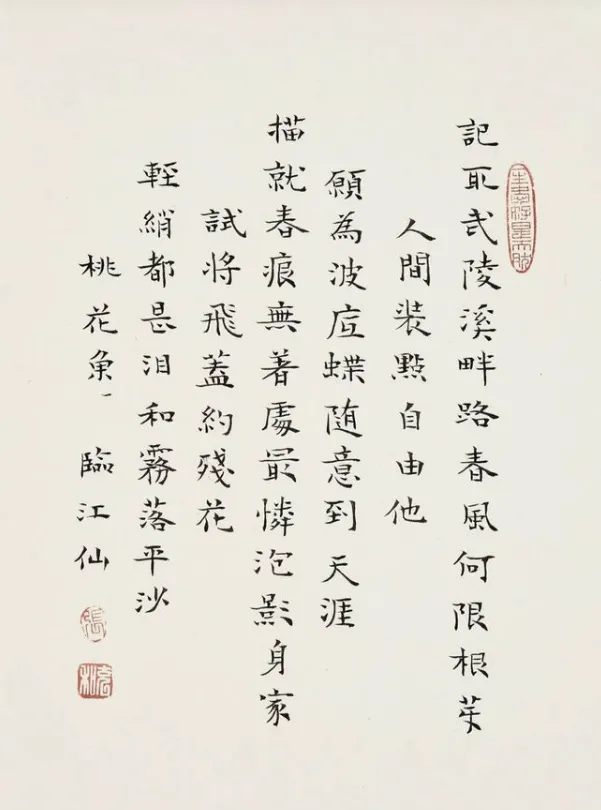 記取武陵溪畔路春風何限根芽
人間裝點自由他
願為波底蝶随意到天涯
描就春痕無著處最憐泡影身家
試將飛蓋約殘花
輕綃都是泪和霧落平沙
桃花魚、臨江仙
張